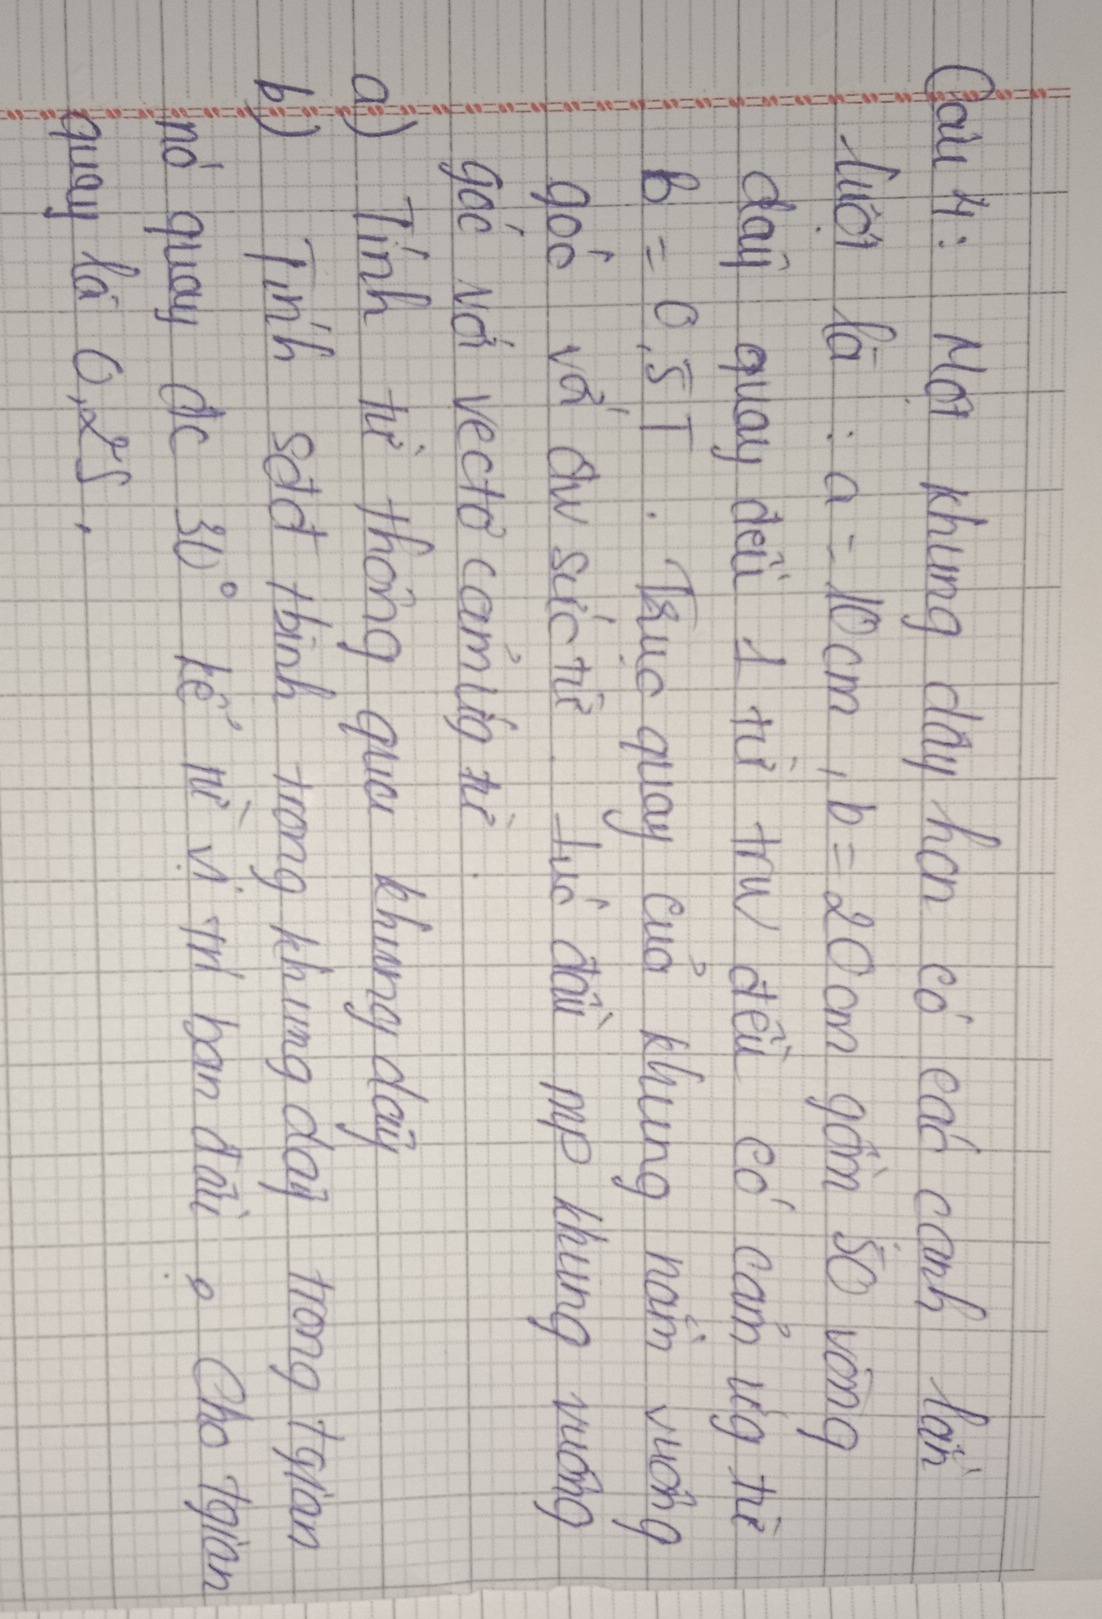 Câu 4: Một khung dây hcn có các cạnh lần
lượt là : a = 10cm , b = 20cm gồm 50 vòng
dây quay đều 1 từ trư đều có cảm ứg từ
B = 0,5T . Trục quay của khung nằm vuông
góc với đư sức từ . Lúc đầu mp khung vuông
góc với vectơ cảm ứg từ .
a) Tính từ thông qua khung dây
b) Tính Sđđ tbình trong khung dây trong tgian
nó quay đc 30° kể từ vị trí ban đầu . Cho tgian
quay là 0,2s .